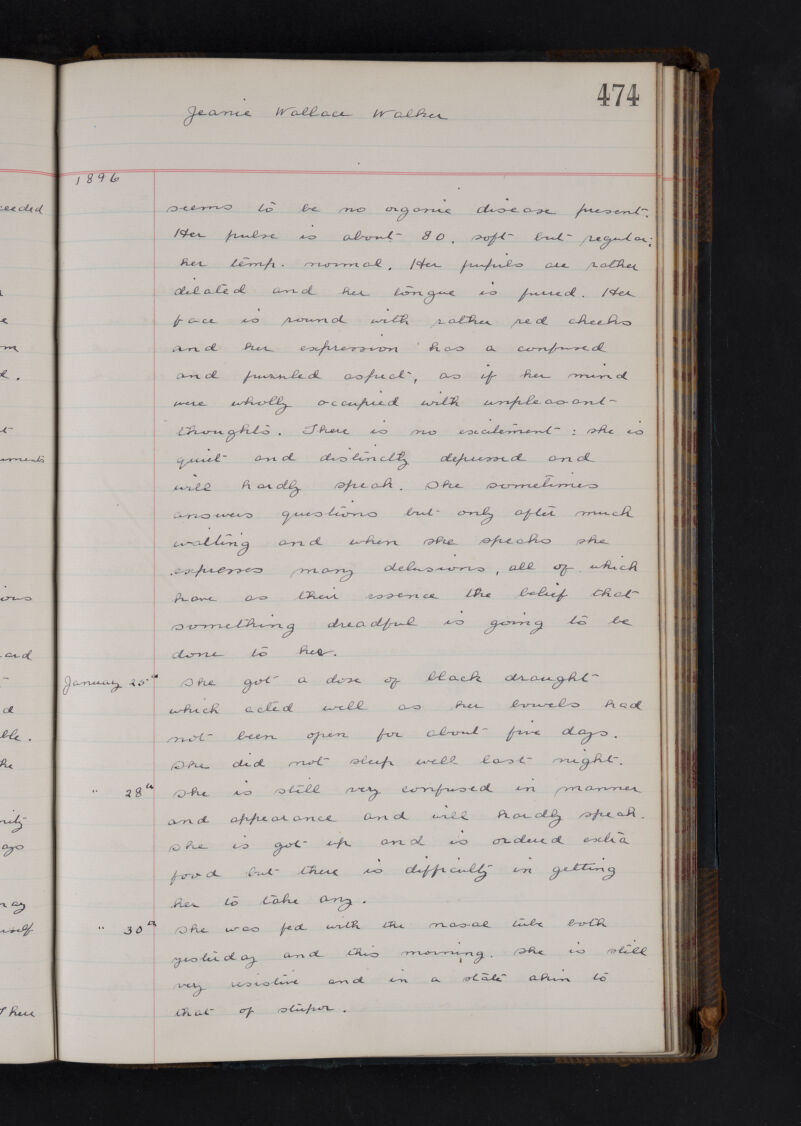 474
Jeanie Wallace Walker
1896
seems to be no organic disease present.
Her pulse is about 80, soft but regular;
her temp. normal. Her pupils are rather
dilated and her tongue is furred. Her
face is round with rather red cheeks
and her expression has a confused
and puzzled aspect, as if her mind
were wholly occupied with unpleasant
thoughts. There is no excitement: she is
quiet and distinctly depressed and
will hardly speak. She sometimes
answers questions but only after much
waiting and when she speaks she
expresses many delusions, all of which
have as their essence the belief that
something dreadful is going to be
done to her.
January 25th She got a dose of black draught
which acted well as her bowels had
not been open for about five days.
She did not sleep well last night.
" 28th She is still very confused in manner
and appearance and will hardly speak.
She is got up and is ordered extra
food but there is difficulty in getting
her to take any.
" 30th She was fed with the nasal tube both
yesterday and this morning. She is still
very resistive and in a state akin to
that of stupor.